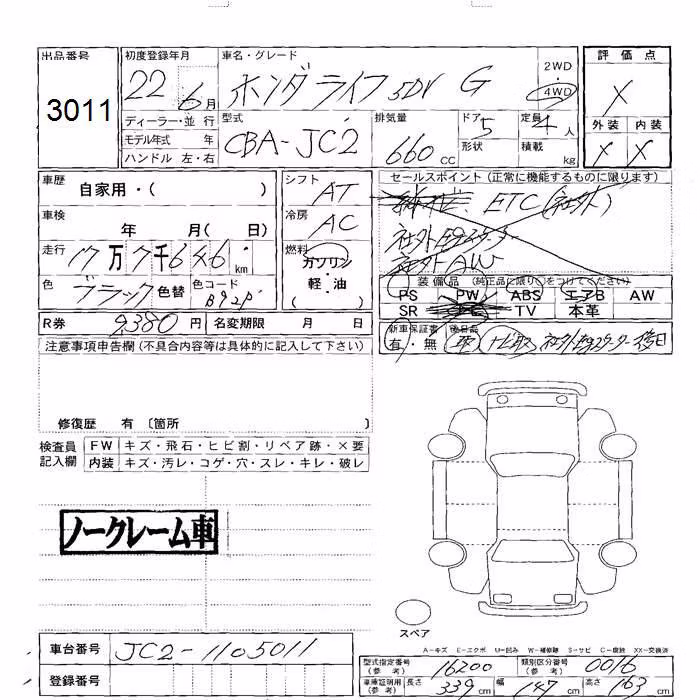 出品番号 初度登録年月 車名・グレード 2WD 評価点
3011 22 6月 ホンダライフ 5DV G 4WD X
ディーラー・並行 型式 排気量 ドア 定員 外装 内装
モデル年式 年 CBA-JC2 660cc 5 4人 X X
ハンドル 左・右 形状 積載 kg
車歴 自家用・( ) シフト AT セールスポイント (正常に機能するものに限ります)
車検 年 月( 日) 冷房 AC ETC(社外)
社外Egスターター
走行 17万7千646km 燃料 ガソリン・軽・油 ( ) 社外AW
色 ブラック 色替 色コード B92P 装備品 (純正品に限り○をつけてください)
PS PW ABS エアB AW
SR TV 本革
R券 9380円 名変期限 月 日 新車保証書 後日品
有・無
注意事項申告欄 (不具合内容等は具体的に記入して下さい)
修復歴 有 〔箇所 〕
検査員記入欄 FW キズ・飛石・ヒビ割・リペア跡・×要
内装 キズ・汚レ・コゲ・穴・スレ・キレ・破レ
ノークレーム車
スペア
A-キズ E-エクボ U-凹み W-補修跡 S-サビ C-腐蝕 XX-交換済
車台番号 JC2-1105011
登録番号
型式指定番号(参考) 16200 類別区分番号(参考) 0016
車庫証明用(参考) 長さ 339cm 幅 147cm 高さ 163cm